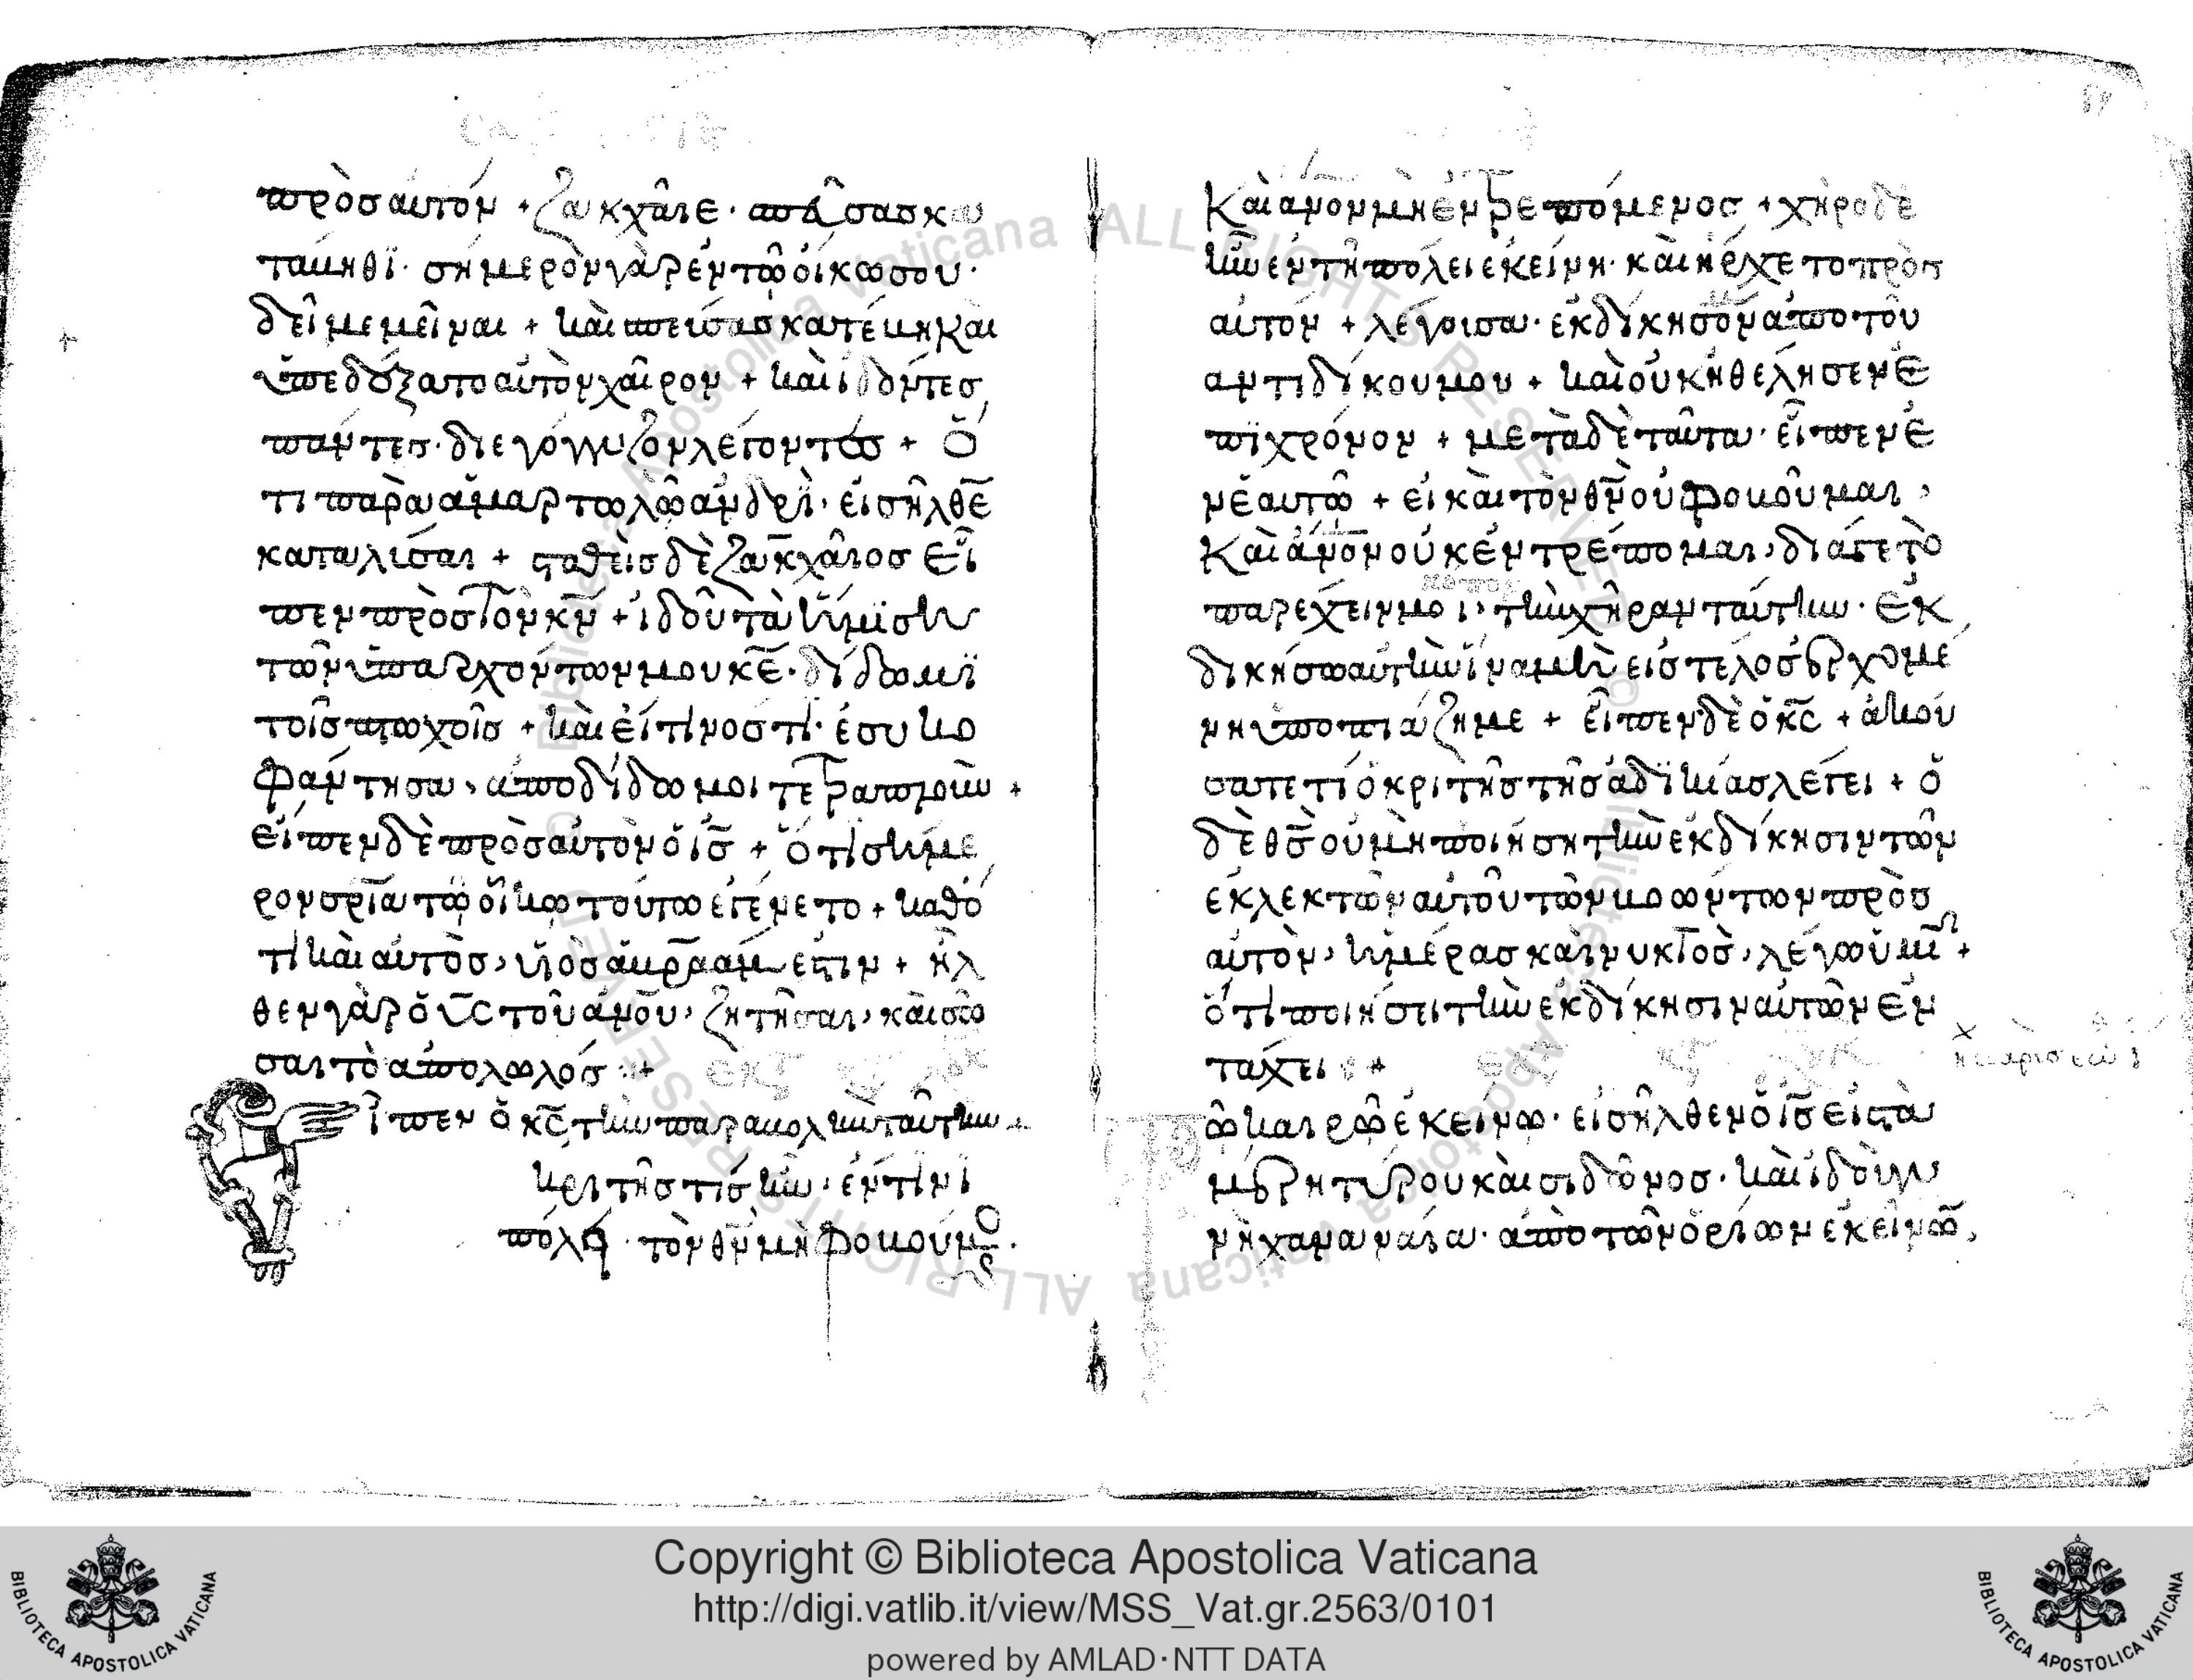 πρὸσ αυτόν + ζακχᾶιε · σπεῦσασ κα
τάβηθϊ · σήμερὸν γὰρ ἐν τῶ ὀίκω σου ·
δεῖ με μεῖναι + και σπεύσασ κατέβη και
ὑπεδέξατο αὐτὸν χαῖρον + και ἰδόντεσ
πάντεσ · διεγόγγυζον λέγοντεσ + ὅ
τι παρὰ ἁμαρτωλῶ ἀνδρὶ · εἰσῆλθε
καταλῦσαι + σταθεὶσ δὲ ζακχᾶιοσ εἶ
πεν πρὸσ τὸν κν + ἰδοῦ τὰ ἡμίση
τῶν ὑπαρχόντων μου κε · δίδωμϊ
τοῖσ πτωχοῖσ + και εἴ τινοσ τι · ἐσυκο
φάντησα, ἀποδίδωμοι τετραπλοῦν +
εἶπεν δὲ πρὸσ αὐτὸν ὁ ισ + ὅτι σήμε
ρον σρια τῶ οἴκω τούτω ἐγένετο + καθό
τι και αὐτὸσ, υἱὸσ ἀβρααμ ἐστιν + ἦλ
θεν γὰρ ὁ υσ τοῦ ανου, ζητῆσαι, και σῶ
σαι τὸ ἀπολωλόσ +
Εἶπεν ὁ κσ τὴν παραβολὴν ταύτην
κριτὴσ τίσ ἦν · ἐν τινϊ
πόλει · τὸν θν μὴ φοβούμενοσ
Και ανον μὴ ἐντρεπόμενοσ + χήρο δὲ
ἦν ἐν τῆ πόλει ἐκείνη · και ἤρχετο πρὸσ
αὐτόν + λέγουσα · ἐκδίκησόν ἀπο τοῦ
αντιδίκου μου + και οὐκ ἠθέλησεν ἐ
πϊ χρόνον + μετὰ δὲ ταῦτα · εἶπεν ἐ
ν ἑαυτῶ + εἰ και τὸν θν οὐ φοβοῦμαι,
Και ανον οὐκ ἐντρέπομαι, διάγε τὸ
παρέχειν μοι, τὴν χήραν ταύτην · ἐκ
δικήσω αὐτὴν ἵνα μὴ εἰσ τέλοσ ἐρχομέ
νη ὑποπιάζη με + εἶπεν δὲ ὁ κσ + ἀκού
σατε τί ὁ κριτὴσ τῆσ ἀδϊκίασ λέγει + ὁ
δὲ θσ οὐ μὴ ποιήση τὴν ἐκδίκησιν τῶν
ἐκλεκτῶν αὐτοῦ τῶν βοώντων πρὸσ
αὐτὸν, ἡμέρασ και νυκτὸσ, λέγω ὑμῖν +
ὅτι ποιήσει τὴν ἐκδίκησιν αὐτῶν ἐν
τάχει +
ῶ καιρῶ ἐκείνω · εἰσῆλθεν ὁ ισ εἰσ τὰ
μέρη τύρου και σιδῶνοσ · και ἰδοὺ γυ
νὴ χαναναία · ἀπὸ τῶν ὁρίων ἐκείνων
Copyright © Biblioteca Apostolica Vaticana
http://digi.vatlib.it/view/MSS_Vat.gr.2563/0101
powered by AMLAD·NTT DATA
BIBLIOTECA APOSTOLICA VATICANA
BIBLIOTECA APOSTOLICA VATICANA